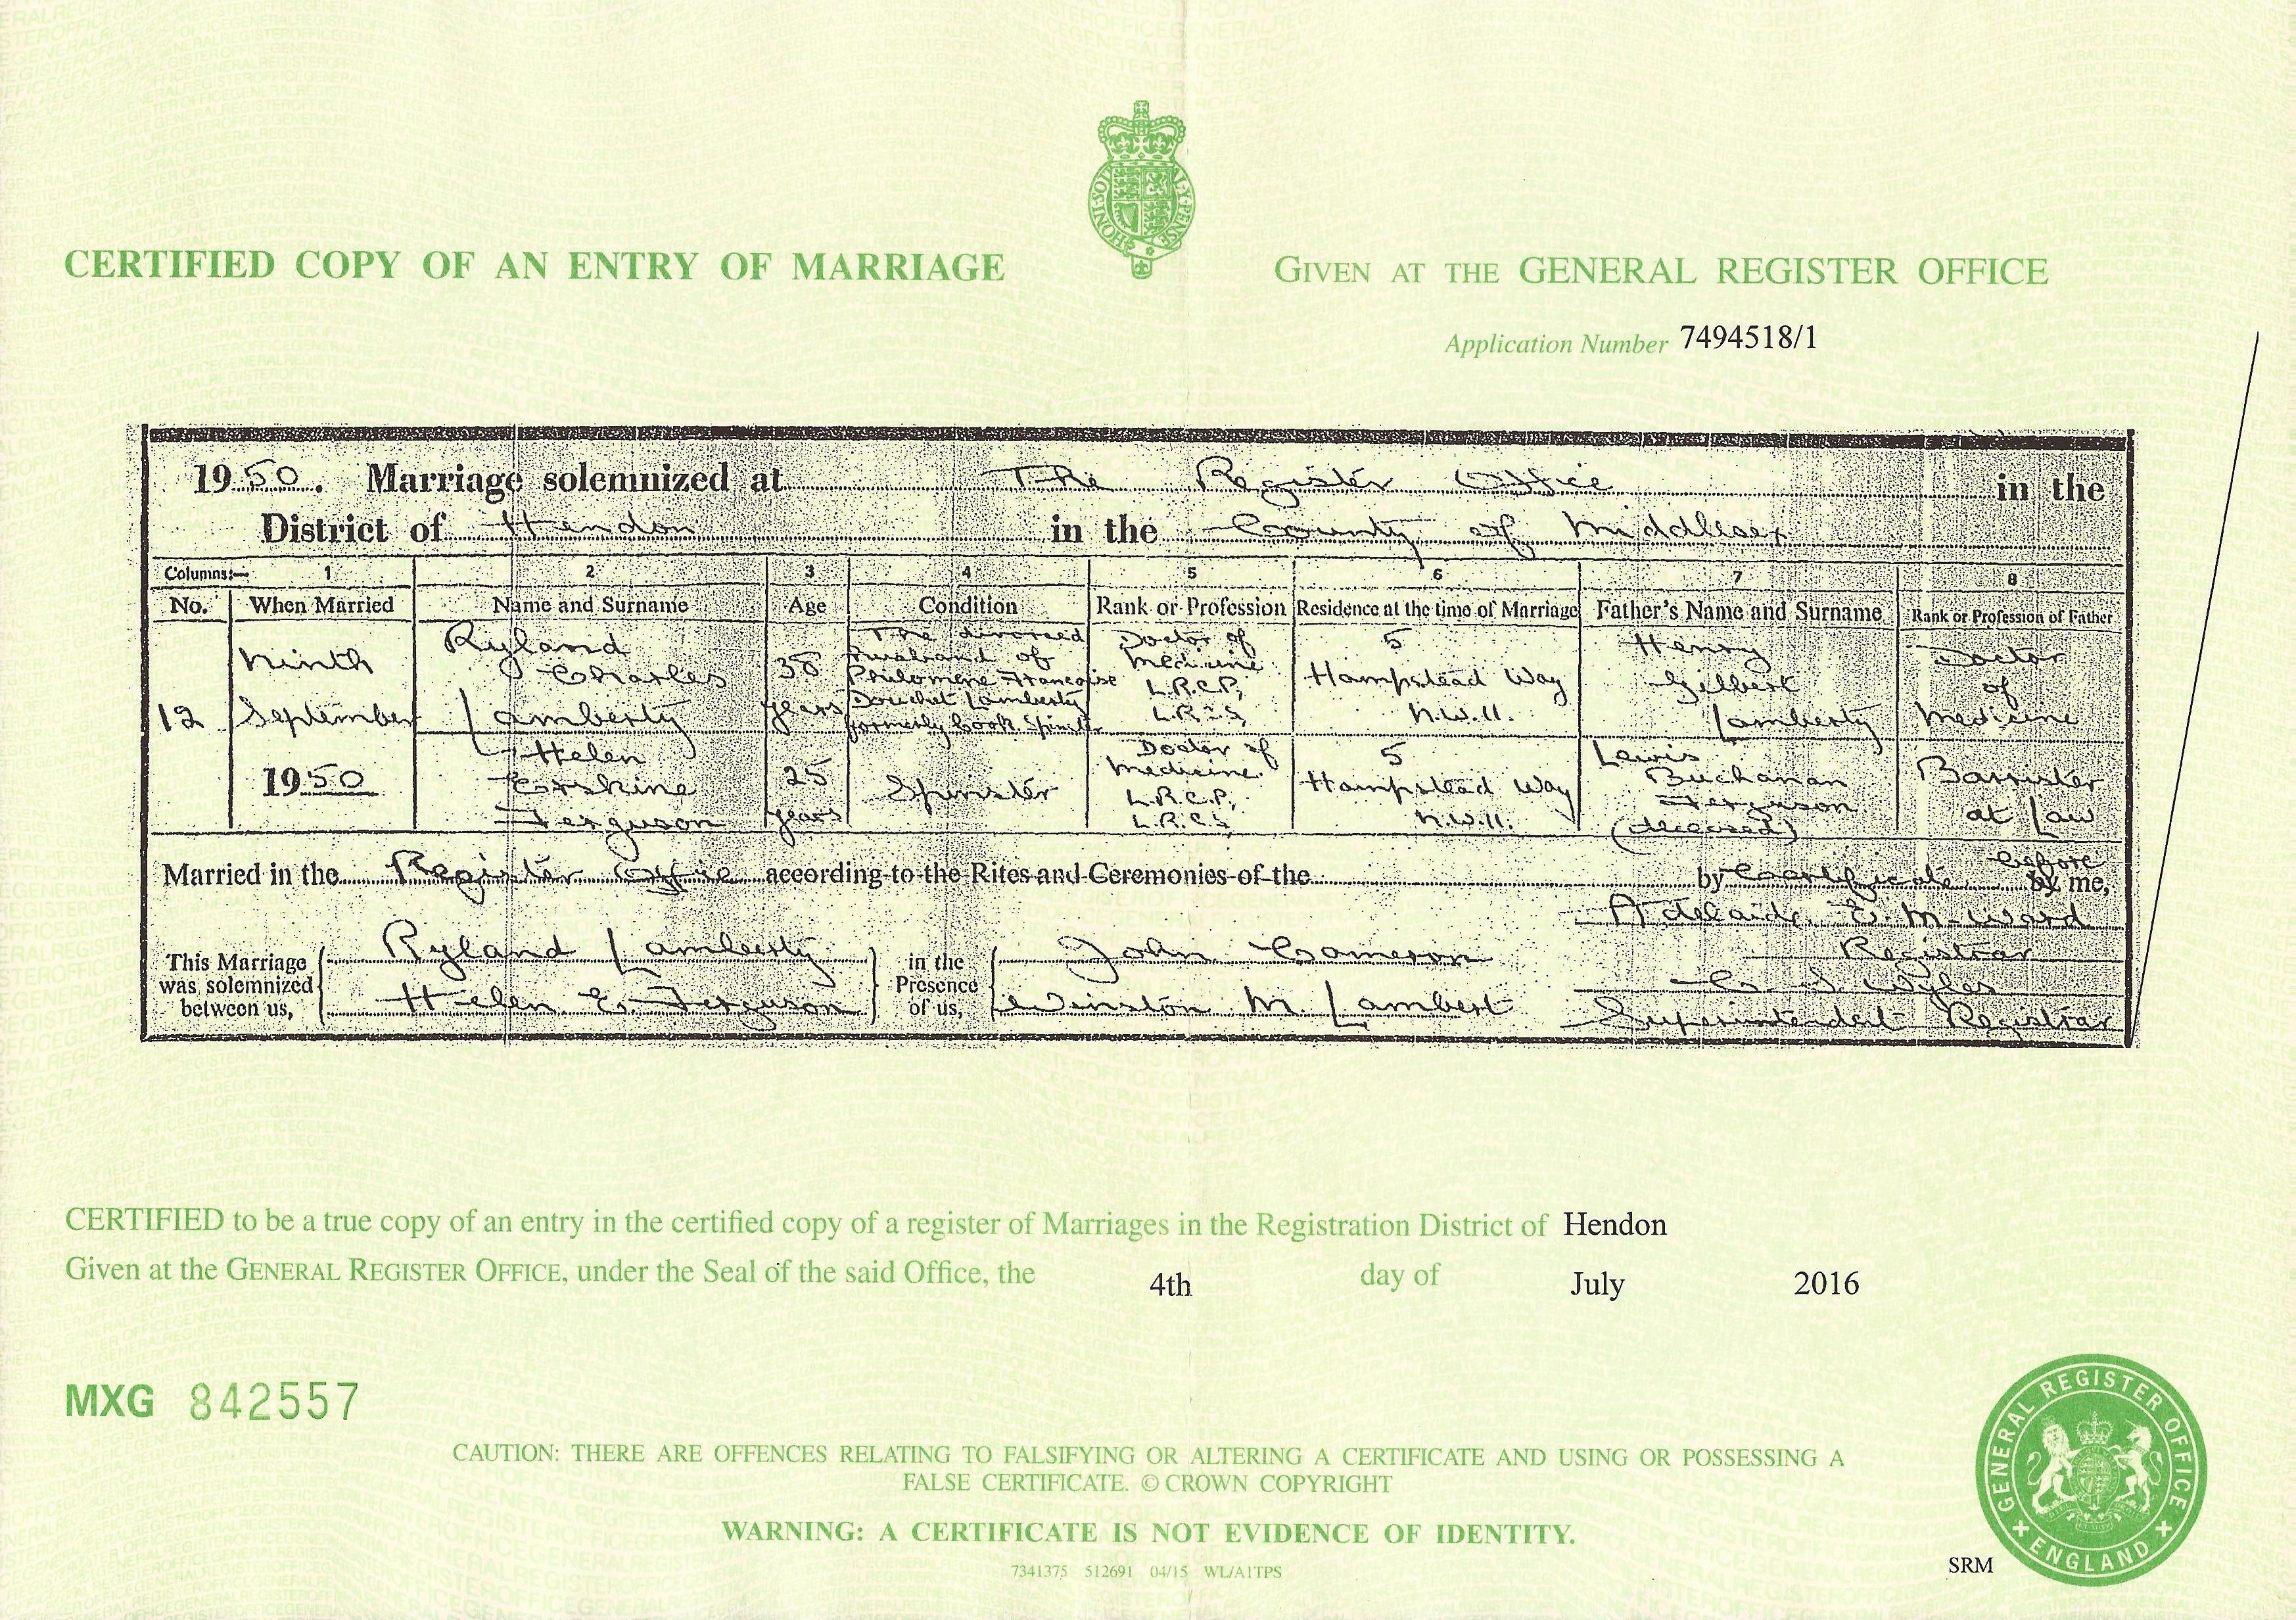 CERTIFIED COPY OF AN ENTRY OF MARRIAGE
GIVEN AT THE GENERAL REGISTER OFFICE
Application Number 7494518/1
1950. Marriage solemnized at The Register Office in the
District of Hendon in the County of Middlesex
Columns:— 1 2 3 4 5 6 7 8
No. When Married Name and Surname Age Condition Rank or Profession Residence at the time of Marriage Father's Name and Surname Rank or Profession of Father
12 Ninth September 1950
Ryland Charles Lamberty 38 years The divorced husband of Philomene Francoise Douchet Lamberty formerly Cook, Spinster Doctor of Medicine L.R.C.P., L.R.C.S. 5 Hampstead Way N.W.11. Henry Gilbert Lamberty Doctor of Medicine
Helen Erskine Ferguson 25 years Spinster Doctor of Medicine. L.R.C.P., L.R.C.S. 5 Hampstead Way N.W.11. Lewis Buchanan Ferguson (deceased) Barrister at Law
Married in the Register Office according to the Rites and Ceremonies of the by Certificate before by me,
Adelaide E. M. Ward
Registrar
This Marriage was solemnized between us, Ryland Lamberty Helen E. Ferguson in the Presence of us, John Cameron Winston M. Lambert
C. S. Wyles
Superintendent Registrar
CERTIFIED to be a true copy of an entry in the certified copy of a register of Marriages in the Registration District of Hendon
Given at the GENERAL REGISTER OFFICE, under the Seal of the said Office, the 4th day of July 2016
MXG 842557
CAUTION: THERE ARE OFFENCES RELATING TO FALSIFYING OR ALTERING A CERTIFICATE AND USING OR POSSESSING A
FALSE CERTIFICATE. © CROWN COPYRIGHT
WARNING: A CERTIFICATE IS NOT EVIDENCE OF IDENTITY.
7341375 512691 04/15 WL/A1TPS
SRM
GENERAL REGISTER OFFICE
ENGLAND